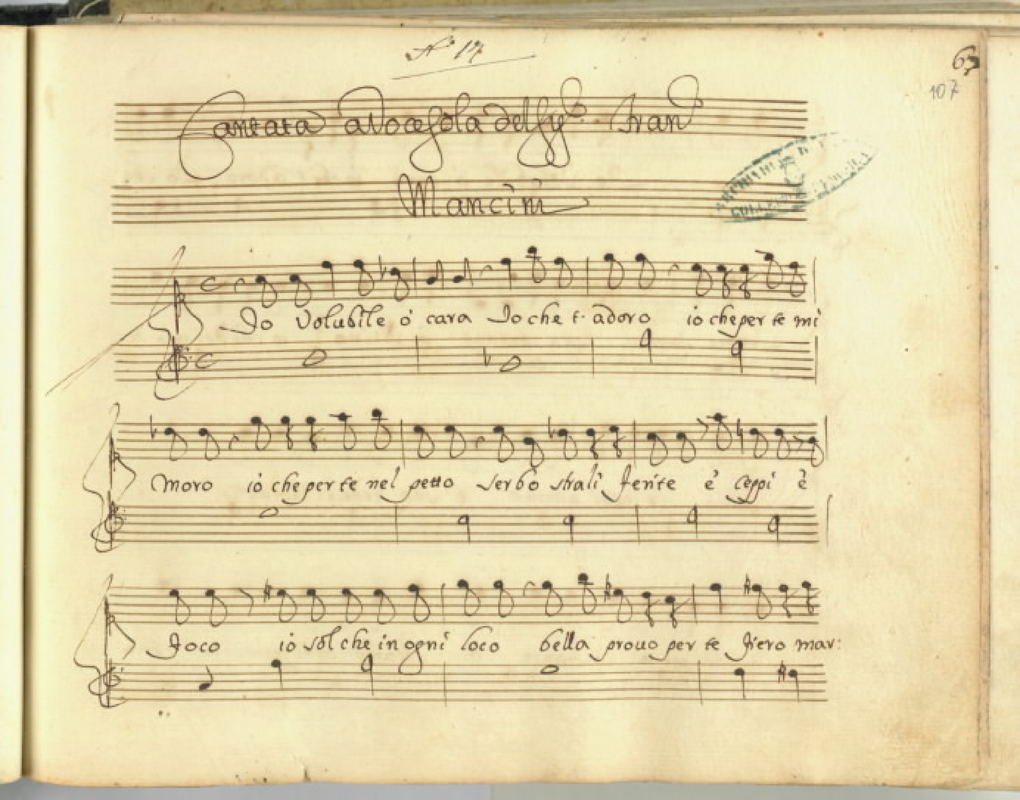 N° 17
67
107
Cantata a Voce Sola del Sigr. Fran
Mancini
Io Volubile ò cara Io che t' adoro io che per te mi
moro io che per te nel petto serbo strali ferite è Ceppi è
foco io sol che in ogni loco bella prouo per te fiero mar: